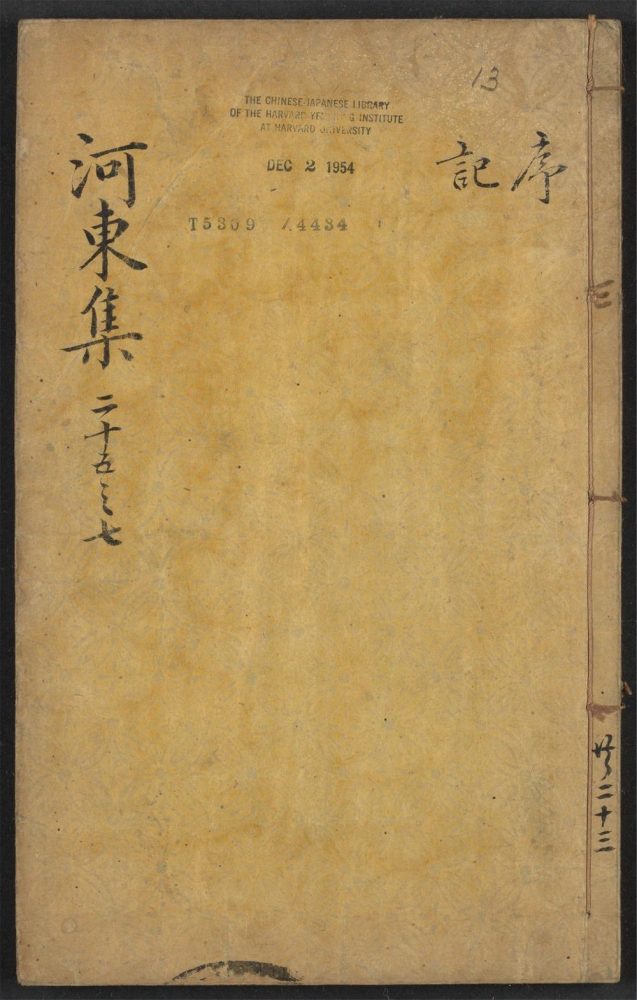 13
THE CHINESE-JAPANESE LIBRARY
OF THE HARVARD YENCHING INSTITUTE
AT HARVARD UNIVERSITY
DEC 2 1954
T5309 /4434
序
記
河東集 二十五之七
共二十三